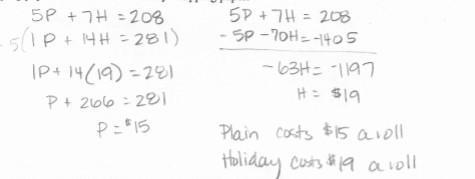 5P + 7H = 208
-5(1P + 14H = 281)
1P + 14(19) = 281
P + 266 = 281
P = $15
5P + 7H = 208
-5P - 70H = -1405
-63H = -1197
H = $19
Plain costs $15 a roll
Holiday costs $19 a roll